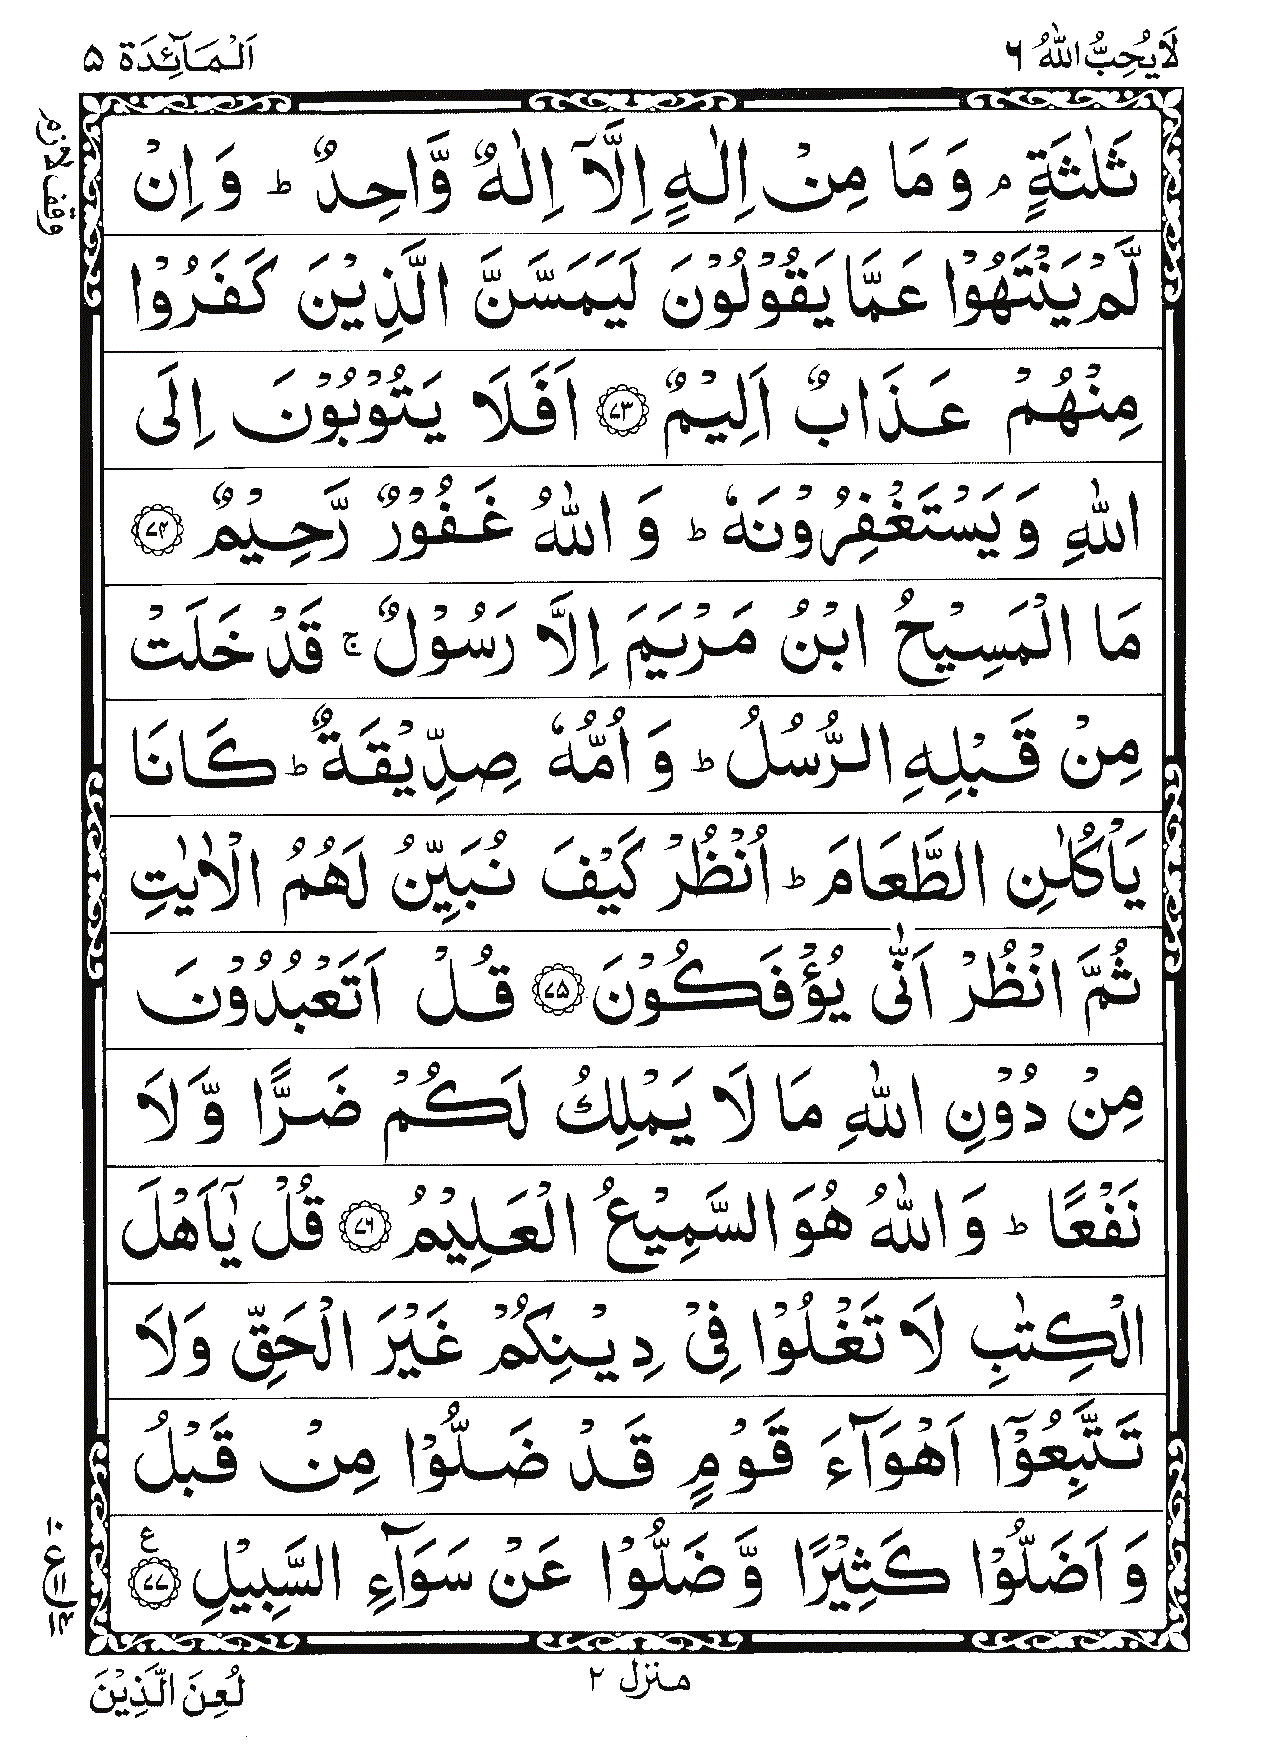 لَا يُحِبُّ اللّٰهُ ٦
اَلْمَآئِدَة ٥
وقف لازم
ثَلٰثَةٍ ۘ وَمَا مِنْ اِلٰهٍ اِلَّاۤ اِلٰهٌ وَّاحِدٌ ؕ وَاِنْ
لَّمْ يَنْتَهُوْا عَمَّا يَقُوْلُوْنَ لَيَمَسَّنَّ الَّذِيْنَ كَفَرُوْا
مِنْهُمْ عَذَابٌ اَلِيْمٌ ﴿۷۳﴾ اَفَلَا يَتُوْبُوْنَ اِلَى
اللّٰهِ وَيَسْتَغْفِرُوْنَهٗ ؕ وَاللّٰهُ غَفُوْرٌ رَّحِيْمٌ ﴿۷۴﴾
مَا الْمَسِيْحُ ابْنُ مَرْيَمَ اِلَّا رَسُوْلٌ ۚ قَدْ خَلَتْ
مِنْ قَبْلِهِ الرُّسُلُ ؕ وَاُمُّهٗ صِدِّيْقَةٌ ؕ كَانَا
يَاْكُلٰنِ الطَّعَامَ ؕ اُنْظُرْ كَيْفَ نُبَيِّنُ لَهُمُ الْاٰيٰتِ
ثُمَّ انْظُرْ اَنّٰى يُؤْفَكُوْنَ ﴿۷۵﴾ قُلْ اَتَعْبُدُوْنَ
مِنْ دُوْنِ اللّٰهِ مَا لَا يَمْلِكُ لَكُمْ ضَرًّا وَّلَا
نَفْعًا ؕ وَاللّٰهُ هُوَ السَّمِيْعُ الْعَلِيْمُ ﴿۷۶﴾ قُلْ يٰۤاَهْلَ
الْكِتٰبِ لَا تَغْلُوْا فِيْ دِيْنِكُمْ غَيْرَ الْحَقِّ وَلَا
تَتَّبِعُوْۤا اَهْوَآءَ قَوْمٍ قَدْ ضَلُّوْا مِنْ قَبْلُ
وَاَضَلُّوْا كَثِيْرًا وَّضَلُّوْا عَنْ سَوَآءِ السَّبِيْلِ ﴿۷۷﴾ ع
١٠
ع ١١
١٤
منزل ٢
لُعِنَ الَّذِيْنَ